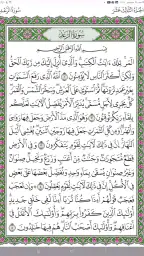 الجزء الثالث عشر سورة الرعد
سُورَةُ الرَّعْدِ
بِسْمِ ٱللَّهِ ٱلرَّحْمَٰنِ ٱلرَّحِيمِ
الٓمٓر تِلْكَ ءَايَٰتُ ٱلْكِتَٰبِ وَٱلَّذِيٓ أُنزِلَ إِلَيْكَ مِن رَّبِّكَ ٱلْحَقُّ
وَلَٰكِنَّ أَكْثَرَ ٱلنَّاسِ لَا يُؤْمِنُونَ ١ ٱللَّهُ ٱلَّذِي رَفَعَ ٱلسَّمَٰوَٰتِ
بِغَيْرِ عَمَدٍ تَرَوْنَهَا ثُمَّ ٱسْتَوَىٰ عَلَى ٱلْعَرْشِ وَسَخَّرَ ٱلشَّمْسَ وَٱلْقَمَرَ
كُلٌّ يَجْرِي لِأَجَلٍ مُّسَمًّى يُدَبِّرُ ٱلْأَمْرَ يُفَصِّلُ ٱلْءَايَٰتِ لَعَلَّكُم بِلِقَآءِ
رَبِّكُمْ تُوقِنُونَ ٢ وَهُوَ ٱلَّذِي مَدَّ ٱلْأَرْضَ وَجَعَلَ فِيهَا رَوَٰسِيَ
وَأَنْهَٰرًا وَمِن كُلِّ ٱلثَّمَرَٰتِ جَعَلَ فِيهَا زَوْجَيْنِ ٱثْنَيْنِ يُغْشِي ٱلَّيْلَ
ٱلنَّهَارَ إِنَّ فِي ذَٰلِكَ لَءَايَٰتٍ لِّقَوْمٍ يَتَفَكَّرُونَ ٣ وَفِي ٱلْأَرْضِ
قِطَعٌ مُّتَجَٰوِرَٰتٌ وَجَنَّٰتٌ مِّنْ أَعْنَٰبٍ وَزَرْعٌ وَنَخِيلٌ صِنْوَانٌ
وَغَيْرُ صِنْوَانٍ يُسْقَىٰ بِمَآءٍ وَٰحِدٍ وَنُفَضِّلُ بَعْضَهَا عَلَىٰ بَعْضٍ
فِي ٱلْأُكُلِ إِنَّ فِي ذَٰلِكَ لَءَايَٰتٍ لِّقَوْمٍ يَعْقِلُونَ ٤
وَإِن تَعْجَبْ فَعَجَبٌ قَوْلُهُمْ أَءِذَا كُنَّا تُرَٰبًا أَءِنَّا لَفِي خَلْقٍ جَدِيدٍ
أُوْلَٰٓئِكَ ٱلَّذِينَ كَفَرُوا۟ بِرَبِّهِمْ وَأُوْلَٰٓئِكَ ٱلْأَغْلَٰلُ فِيٓ
أَعْنَاقِهِمْ وَأُوْلَٰٓئِكَ أَصْحَٰبُ ٱلنَّارِ هُمْ فِيهَا خَٰلِدُونَ ٥